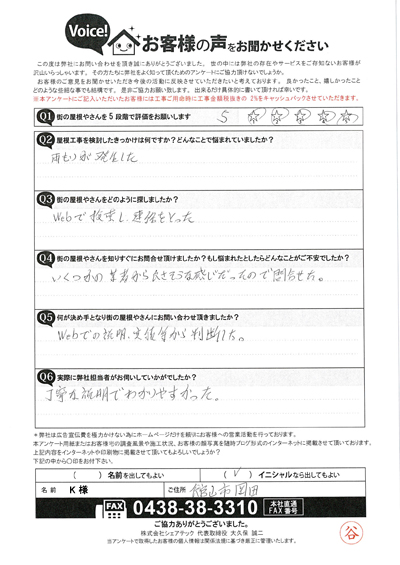 Voice!
お客様の声をお聞かせください
この度は弊社にお問い合わせを頂き誠にありがとうございました。世の中には弊社の存在やサービスをご存知ないお客様が
沢山いらっしゃいます。その方たちに弊社をよく知って頂くためのアンケートにご協力頂けないでしょうか。
お客様のご意見をお聞かせいただき今後の活動に反映させていただきたいと考えております。良かったこと、嬉しかったこと
どのような些細な事でも結構です。是非ご協力お願い致します。出来るだけ具体的に書いて頂ければ幸いです。
※本アンケートにご記入いただいたお客様には工事ご用命時に工事金額税抜きの2%をキャッシュバックさせていただきます。
Q1 街の屋根やさんを5段階で評価をお願いします 5 ☆ ☆ ☆ ☆ ☆
Q2 屋根工事を検討したきっかけは何ですか?どんなことで悩まれていましたか?
雨もりが発生した
Q3 街の屋根やさんをどのように探しましたか?
Webで検索し連絡をとった
Q4 街の屋根やさんを知りすぐにお問合せ頂けましたか?もし悩まれたとしたらどんなことがご不安でしたか?
いくつかの業者から良さそうな感じだったので問合せた。
Q5 何が決め手となり街の屋根やさんにお問い合わせ頂きましたか?
Webでの説明、実績等から判断した。
Q6 実際に弊社担当者がお伺いしていかがでしたか?
丁寧な説明でわかりやすかった。
※弊社は広告宣伝費を極力かけない為にホームページだけを頼りにお客様への営業活動を行っております。
本アンケート用紙またはお客様宅の調査風景や施工状況、お客様の顔写真を随時ブログ形式のインターネットに掲載させて頂いております。
上記内容をインターネットや印刷物に掲載させて頂いてもよろしいでしょうか?
下記の中から○印をお付け下さい。
( ) 名前を出してもよい ( ✓ ) イニシャルなら出してもよい
名前 K 様 ご住所 館山市岡田
FAX 0438-38-3310 本社直通 FAX番号
ご協力ありがとうございました。
株式会社シェアテック 代表取締役 大久保 誠二
当アンケートで取得したお客様の個人情報は関係法規に基づき厳正に管理いたします。
谷